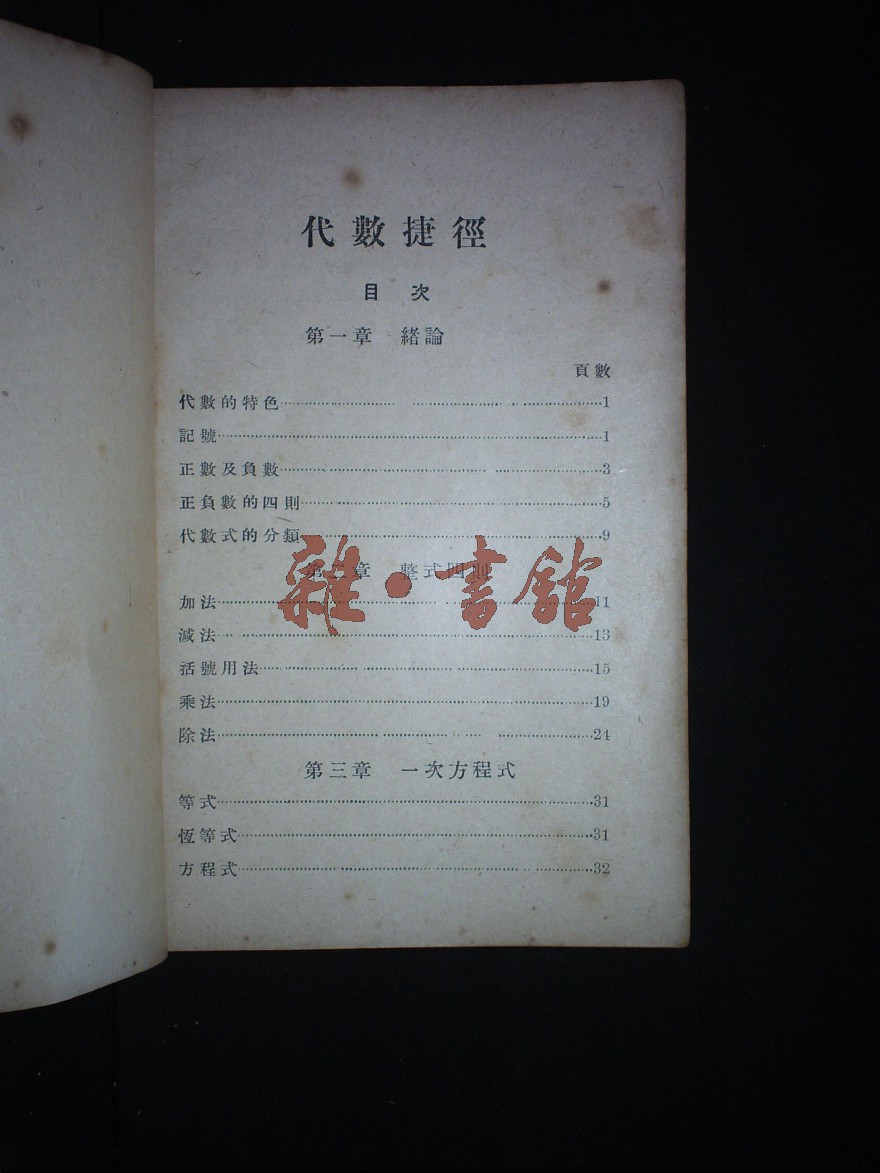 代數捷徑
目次
第一章　緒論
頁數
代數的特色……1
記號……1
正數及負數……3
正負數的四則……5
代數式的分類……9
第二章　整式四則
雜·書館
加法……11
減法……13
括號用法……15
乘法……19
除法……24
第三章　一次方程式
等式……31
恆等式……31
方程式……32